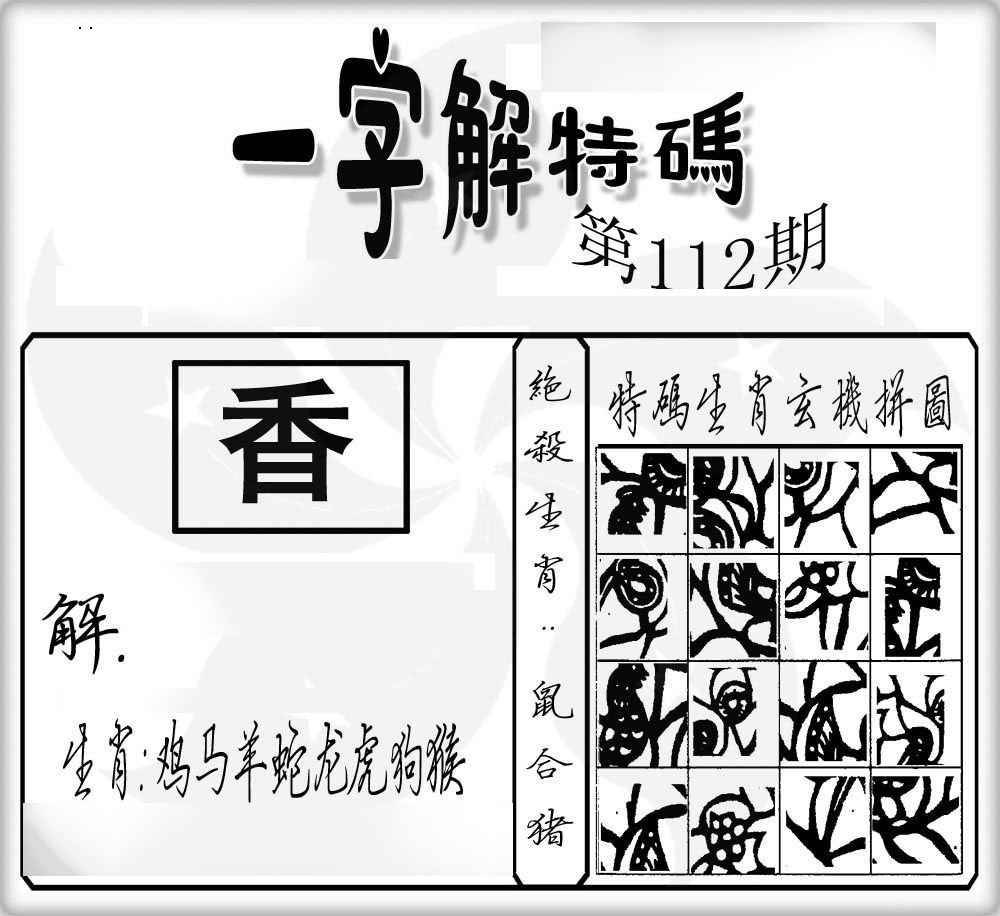 一字解特碼
第112期
香
解.
生肖:鸡马羊蛇龙虎狗猴
絶殺生肖:鼠合猪
特碼生肖玄機拼圖